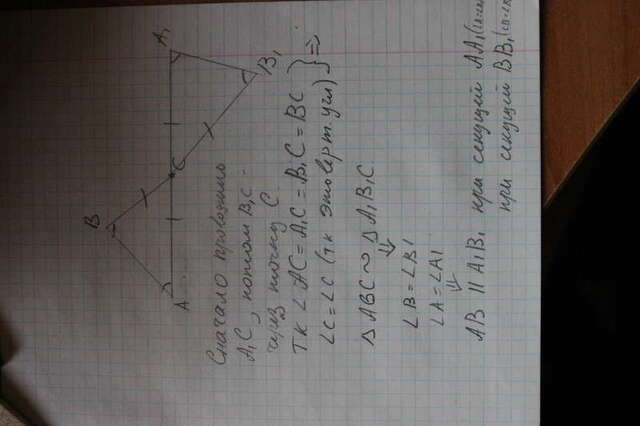 B
A
C
A₁
B₁
Сначало проводим
A₁C, потом B₁C -
через точку C.
Тк ∠ AC = A₁C = B₁C = BC
∠C = ∠C (тк это верт. угл) } =>
△ ABC ~ △ A₁B₁C
⇓
∠B = ∠B1
∠A = ∠A1
⇓
AB || A₁B₁ при секущей AA₁
при секущей BB₁